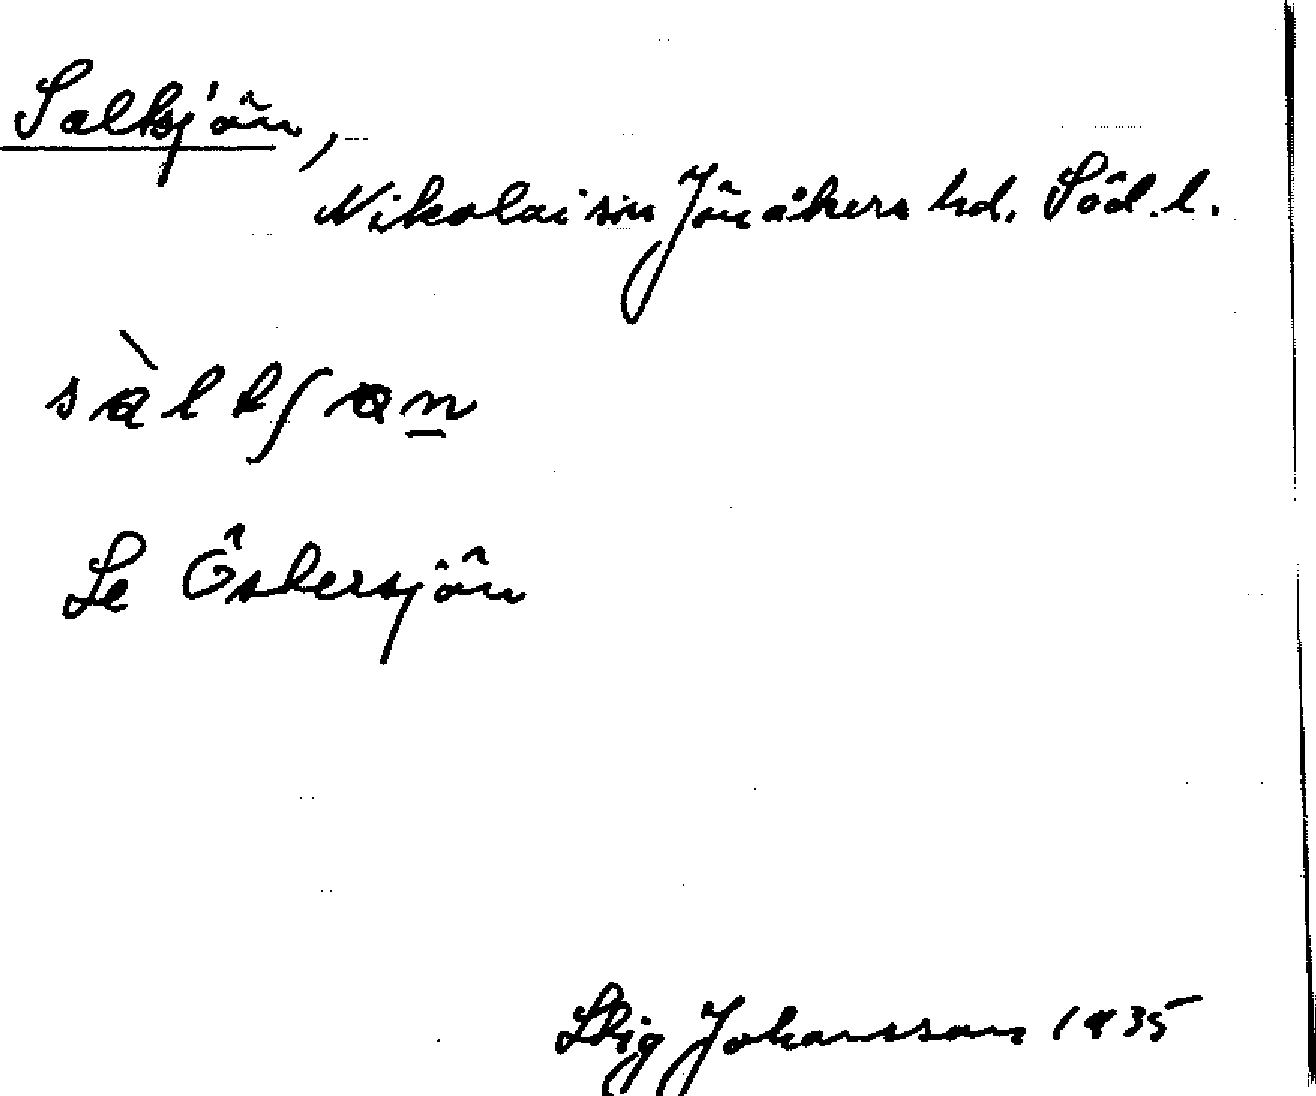 Saltsjön,
Nikolai sn Jönåkers hd. Söd. l.
sàltʃɑn
Se Östersjön
Stig Johansson 1935